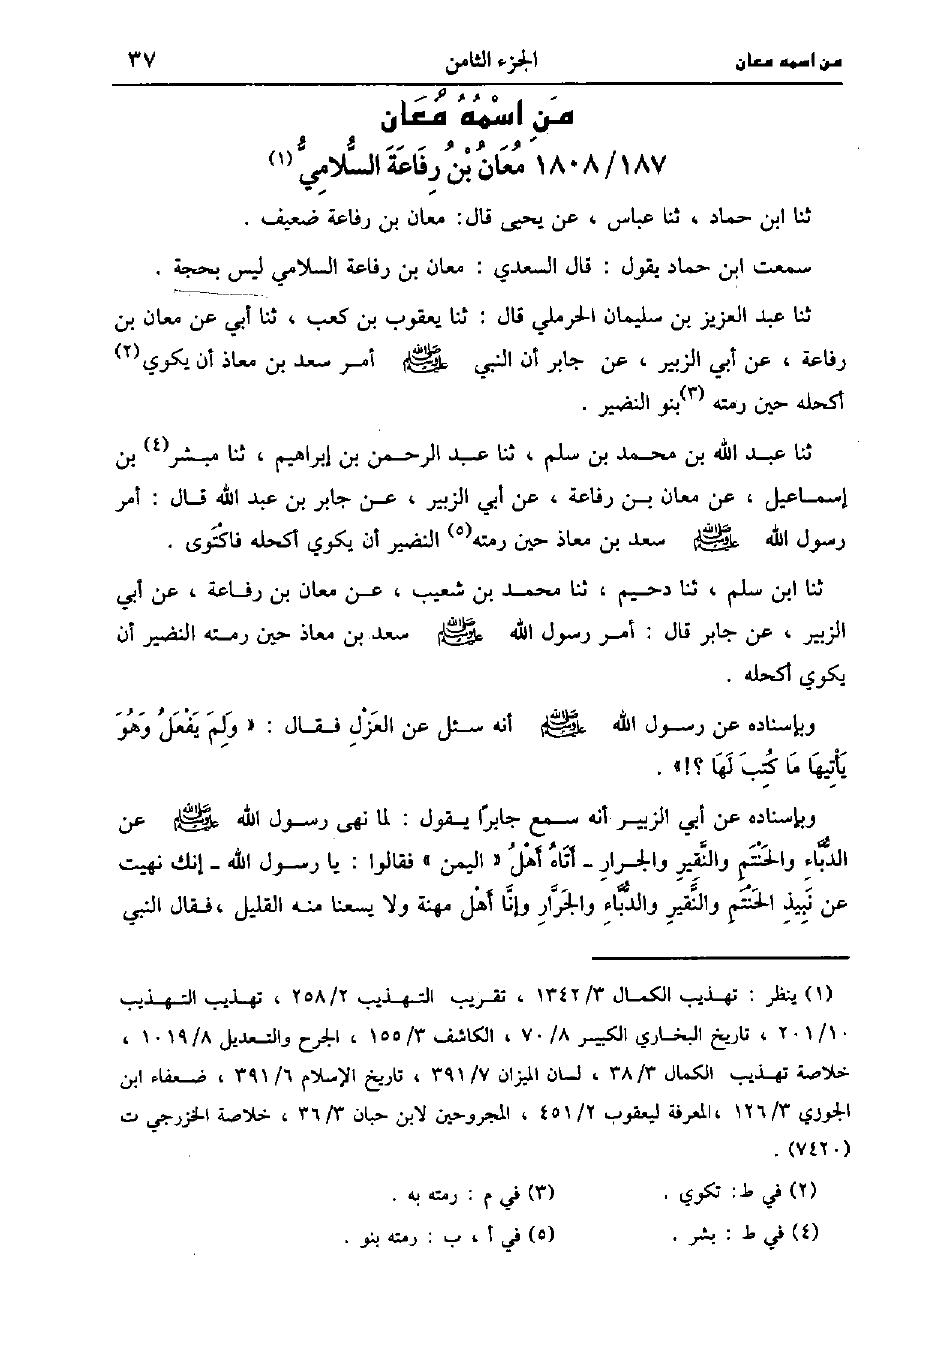 من اسمه معان الجزء الثامن ٣٧
مَنِ اسْمُهُ مُعَان
١٨٠٨/١٨٧ مُعَانُ بْنُ رِفَاعَةَ السَّلَامِيُّ (١)
ثنا ابن حماد ، ثنا عباس ، عن يحيى قال: معان بن رفاعة ضعيف .
سمعت ابن حماد يقول : قال السعدي : معان بن رفاعة السلامي ليس بحجة .
ثنا عبد العزيز بن سليمان الحرملي قال : ثنا يعقوب بن كعب ، ثنا أبي عن معان بن
رفاعة ، عن أبي الزبير ، عن جابر أن النبي ﷺ أمر سعد بن معاذ أن يكوي(٢)
أكحله حين رمته (٣)بنو النضير .
ثنا عبد الله بن محمد بن سلم ، ثنا عبد الرحمن بن إبراهيم ، ثنا مبشر(٤) بن
إسماعيل ، عن معان بن رفاعة ، عن أبي الزبير ، عن جابر بن عبد الله قال : أمر
رسول الله ﷺ سعد بن معاذ حين رمته(٥) النضير أن يكوي أكحله فاكْتَوى .
ثنا ابن سلم ، ثنا دحيم ، ثنا محمد بن شعيب ، عن معان بن رفاعة ، عن أبي
الزبير ، عن جابر قال : أمر رسول الله ﷺ سعد بن معاذ حين رمته النضير أن
يكوي أكحله .
وبإسناده عن رسول الله ﷺ أنه سئل عن العَزْلِ فقال : « وَلِمَ يَفْعَلُ وَهُوَ
يَأْتِيهَا مَا كُتِبَ لَهَا ؟!» .
وبإسناده عن أبي الزبير أنه سمع جابرًا يقول : لما نهى رسول الله ﷺ عن
الدُّبَّاءِ والحَنْتَمِ والنَّقِيرِ والجرارِ ـ أَتَاهُ أَهْلُ « اليمن » فقالوا : يا رسول الله ـ إنك نهيت
عن نَبِيذِ الحَنْتَمِ والنَّقِيرِ والدُّبَّاءِ والجَرَّارِ وإنَّا أهْل مهنة ولا يسعنا منه القليل ، فقال النبي
(١) ينظر : تهذيب الكمال ١٣٤٢/٣ ، تقريب التهذيب ٢٥٨/٢ ، تهذيب التهذيب
٢٠١/١٠ ، تاريخ البخاري الكبير ٧٠/٨ ، الكاشف ١٥٥/٣ ، الجرح والتعديل ١٠١٩/٨ ،
خلاصة تهذيب الكمال ٣٨/٣ ، لسان الميزان ٣٩١/٧ ، تاريخ الإسلام ٣٩١/٦ ، ضعفاء ابن
الجوزي ١٢٦/٣ ،المعرفة ليعقوب ٤٥١/٢ ، المجروحين لابن حبان ٣٦/٣ ، خلاصة الخزرجي ت
(٧٤٢٠) .
(٢) في ط: تكوي . (٣) في م : رمته به .
(٤) في ط : بشر . (٥) في أ ، ب : رمته بنو .